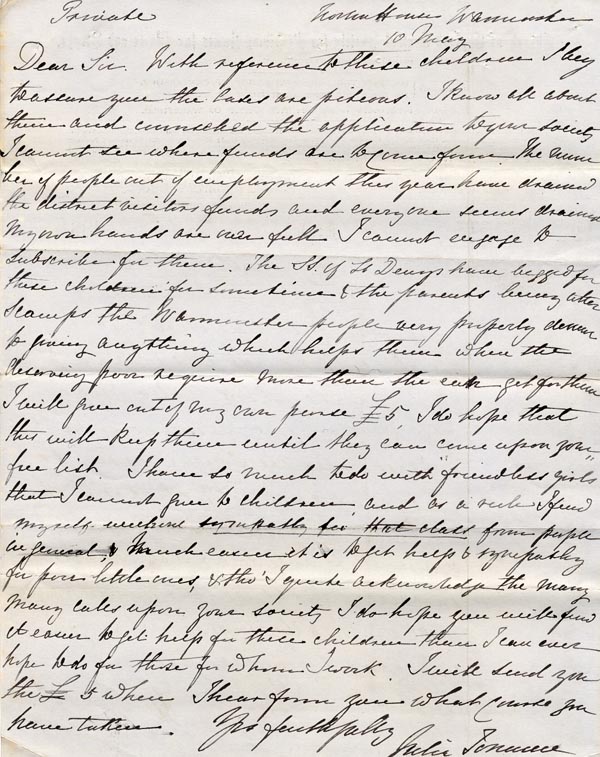 Private House Warminster
10 May
Dear Sir. With reference to these children I beg
to assure you the cases are piteous. I know all about
them and counselled the application to your society
I cannot see where funds are to come from. The num
ber of people out of employment this year have drained
the district visitors funds and everyone seems drained
My own hands are over full I cannot engage to
subscribe for them. The SS. of St Denys have begged for
these children for sometime & the parents being utter
scamps the Warminster people very properly demur
to giving anything which helps them when the
deserving poor require more than they can get for them
I will give out of my own purse £5, I do hope that
this will keep them until they can come upon your
free list. I have so much to do with "friendless girls"
that I cannot give to children, and as a rule I find
myself sympathy for that class from people
in general, & much easier it is to get help & sympathy
for poor little ones, & tho' I quite acknowledge the many
many calls upon your society I do hope you will find
it easier to get help for these children than I can ever
hope to do for those for whom I work. I will send you
the £5 when I hear from you what course you
have taken. Yrs faithfully
Julia